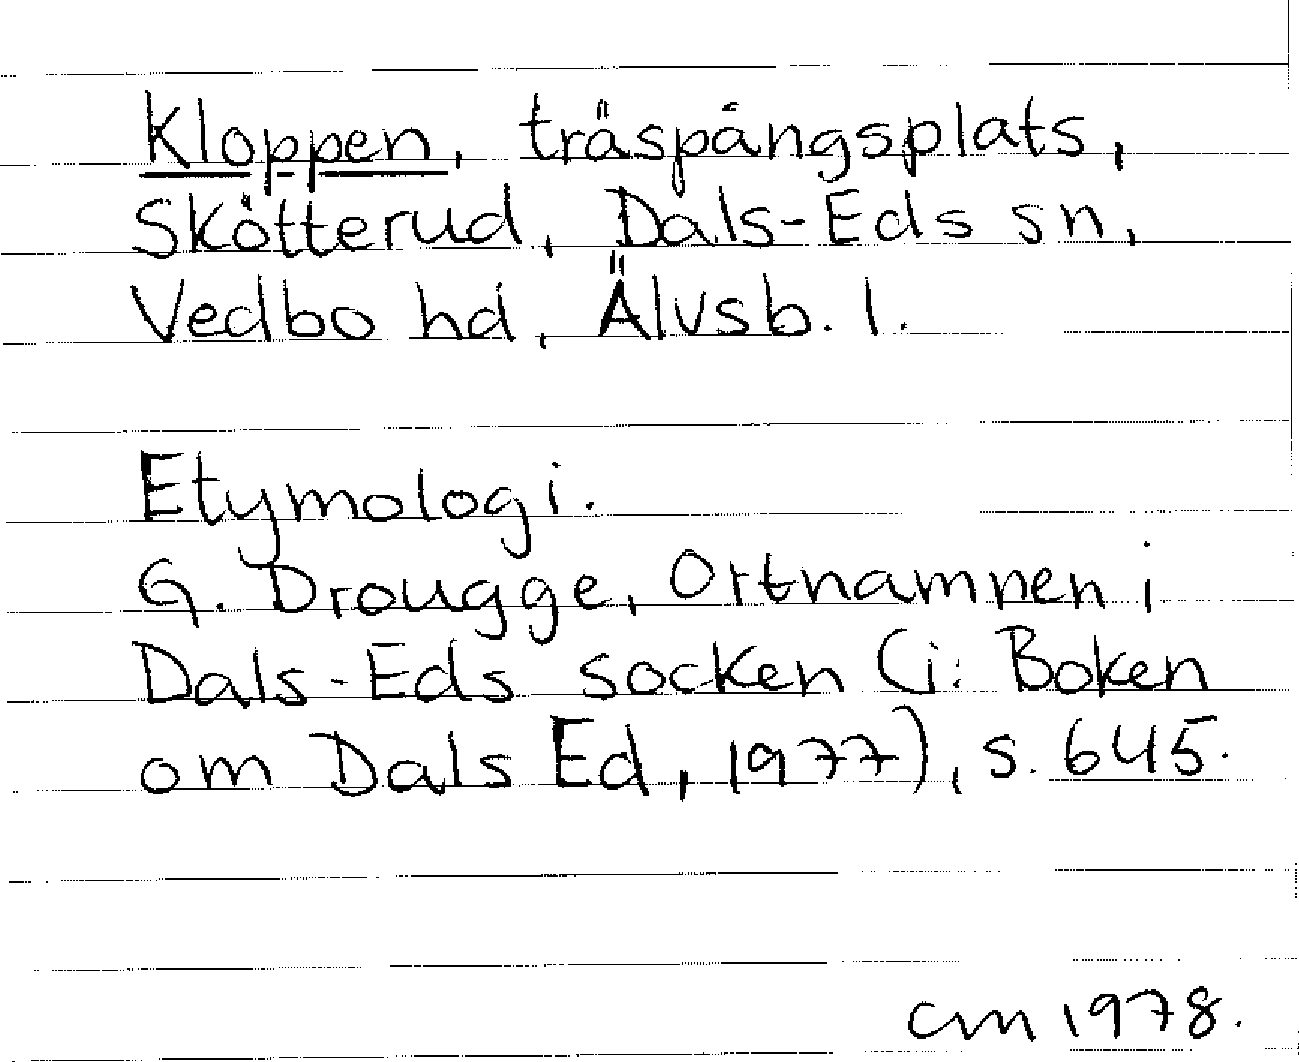 Kloppen, träspångsplats,
Skötterud, Dals-Eds sn,
Vedbo hd, Älvsb. l.
Etymologi.
G. Drougge, Ortnamnen i
Dals-Eds socken (i: Boken
om Dals Ed, 1977), s. 645.
cm 1978.